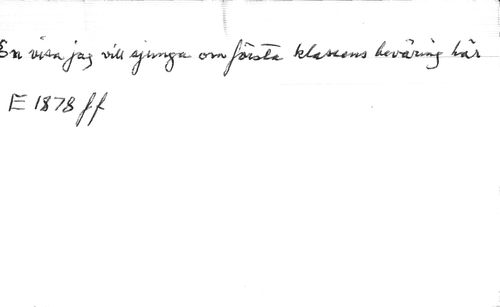 En visa jag vill sjunga om första klassens beväring här
E 1878 ff